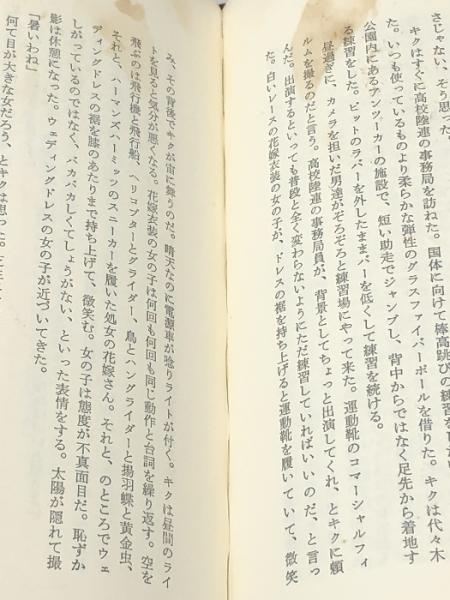 さじゃない、そう思った。
キクはすぐに高校陸連の事務局を訪ねた。国体に向けて棒高跳びの練習をした
た。いつも使っているものより柔らかな弾性のグラスファイバーポールを借りた。キクは代々木
公園内にあるアンツーカーの施設で、短い助走でジャンプし、背中からではなく足先から着地す
る練習をした。ピットのラバーを外したままバーを低くして練習を続ける。
昼過ぎに、カメラを担いだ男達がぞろぞろと練習場にやって来た。運動靴のコマーシャルフィ
ルムを撮るのだと言う。高校陸連の事務局員が、背景としてちょっと出演してくれ、とキクに頼
んだ。出演するといっても普段と全く変わらないようにただ練習していればいいのだ、と言っ
た。白いレースの花嫁衣装の女の子が、ドレスの裾を持ち上げると運動靴を履いていて、微笑
み、その背後でキクが宙に舞うのだ。晴天なのに電源車が唸りライトが付く。キクは昼間のライ
トを見ると気分が悪くなる。花嫁衣装の女の子は何回も何回も同じ動作と台詞を繰り返す。空を
飛ぶのは飛行機と飛行船、ヘリコプターとグライダー、鳥とハングライダーと揚羽蝶と黄金虫、
それと、ハーマンズハーミッツのスニーカーを履いた処女の花嫁さん。それと、のところでウェ
ディングドレスの裾を膝のあたりまで持ち上げて、微笑む。女の子は態度が不真面目だ。恥ずか
しがっているのではなく、バカバカしくてしょうがない、といった表情をする。太陽が隠れて撮
影は休憩になった。ウェディングドレスの女の子が近づいてきた。
「暑いわね」
何て目が大きな女だろう、とキクは思った。